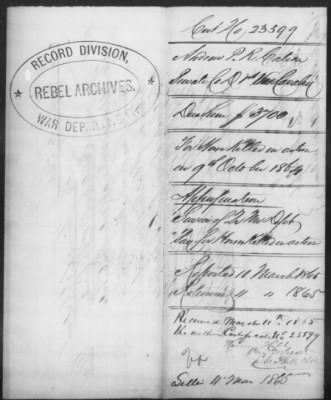 RECORD DIVISION,
REBEL ARCHIVES,
WAR DEPARTMENT
Cert No, 23599
Andrew P. R.
Private Co D 1st Cavalry
Due him $ 3700,
For Horse killed in action
on 9th October 1864
Appropriation
Service of Qr Mr Dept
"Pay for Horse killed in action
Reported 10 March 1865
Returned " " 1865
Received March 11th 1865
the within Certificate No 23599
Letter 11 Mar 1865